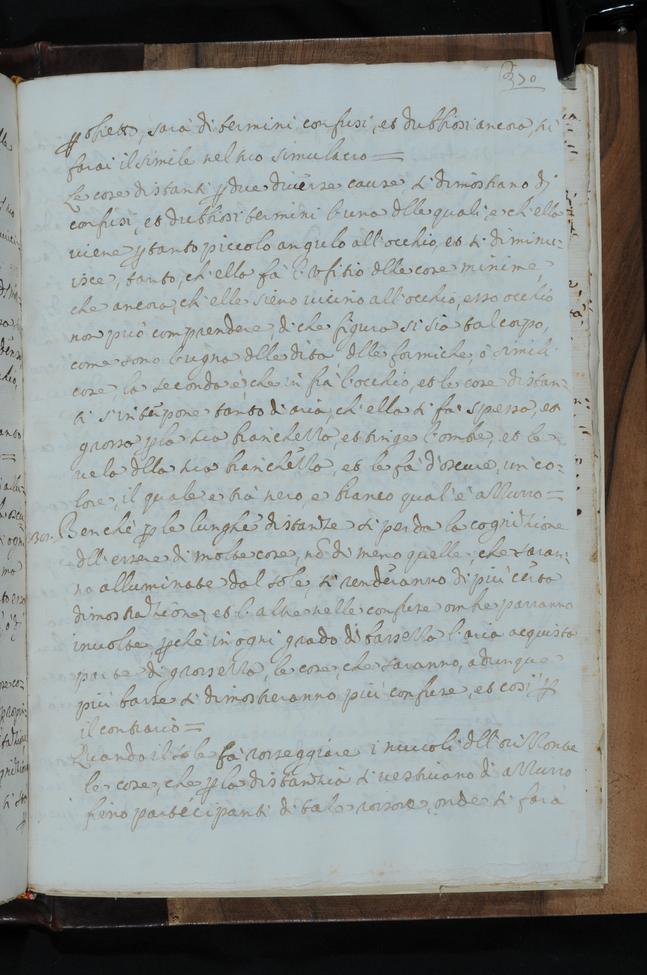 370
obietto, sarà di termini confusi, et dubbiosi ancora, ti
farai il simile nel tuo simulacro =
Le cose distanti p due diverse cause ti dimostrano di
confusi, et dubbiosi termini l'una delle quali, e ch'ella
viene p tanto piccolo angulo all'occhio, et ti diminu-
isce, tanto, ch'ella fà l'ofitio delle cose minime
che ancora ch'elle sieno vicino all'occhio, esso occhio
non può comprendere, di che figura si sia tal corpo,
come sono l'ugna delle dita delle formiche, ò simili
cose, la seconda è, che in frà l'occhio, et le cose distan-
ti s'interpone tanto di aria, ch'ella ti fà spessa, et
grossa, p la sua bianchezza, et tinge l'ombre, et le
vela della sua bianchezza, et le fà d'oscure, un co-
lore, il quale e trà nero, e bianco qual'è azzurro =
Benche p le lunghe distanze si perda la cognizione
dell'essere di molte cose, nõ di meno quelle, che saran-
no alluminate dal sole, ti renderanno di più certa
dimostrazione, et l'altre nelle confuse ombre parranno
involte, pchè in ogni grado di bassezza l'aria acquista
parte di grossezza, le cose, che saranno, adunque
più basse ti dimosteranno più confuse, et così p
il contrario =
Quando il sole fà rosseggiare i nuvoli dell'orizzonte
le cose, che p la distanzia si vestivano di azzurro
fieno partecipanti di tale rossore, onde ti farà